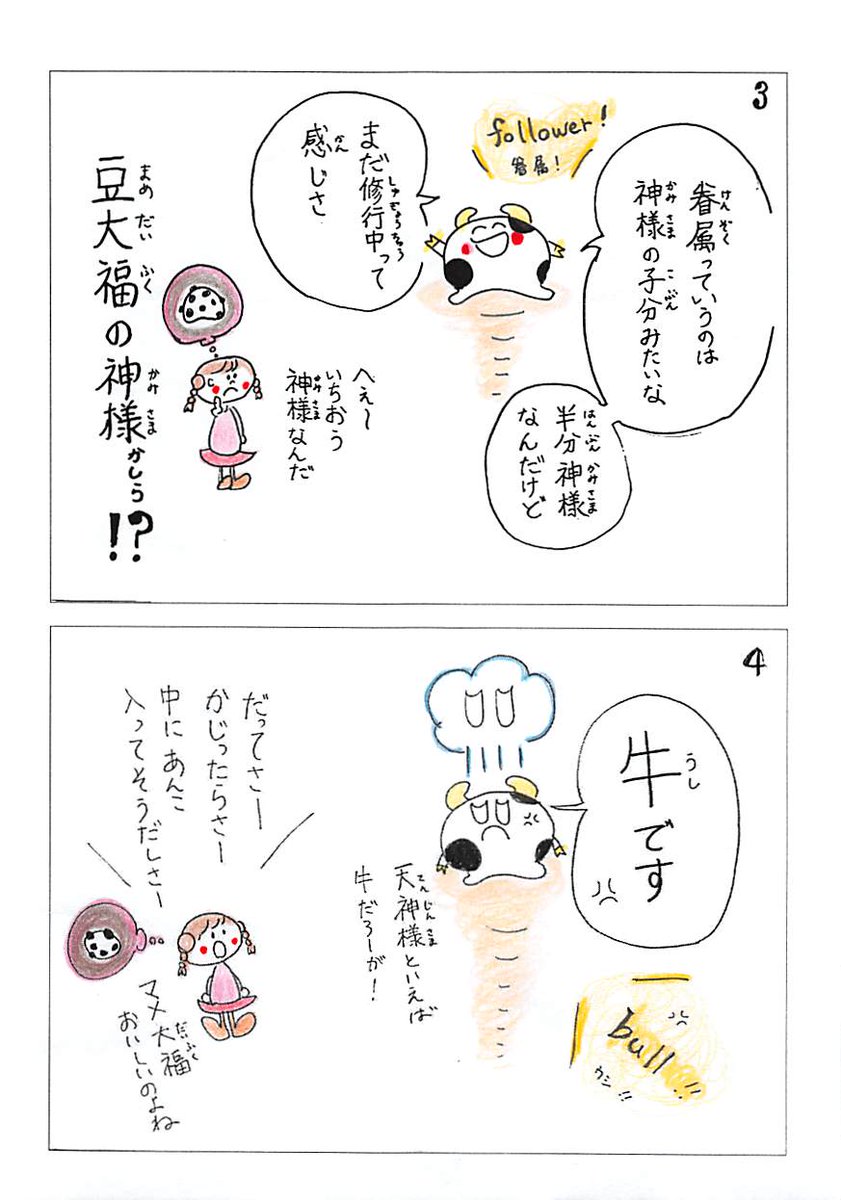 3
眷属っていうのは
神様の子分みたいな
半分神様
なんだけど
follower!
眷属!
まだ修行中って
感じさ
へぇ〜
いちおう
神様なんだ
豆大福の神様かしら!?
4
牛です
bull!!
ウシ!!
天神様といえば
牛だろーが!
だってさー
かじったらさー
中にあんこ
入ってそうだしさー
マメ大福
おいしいのよね